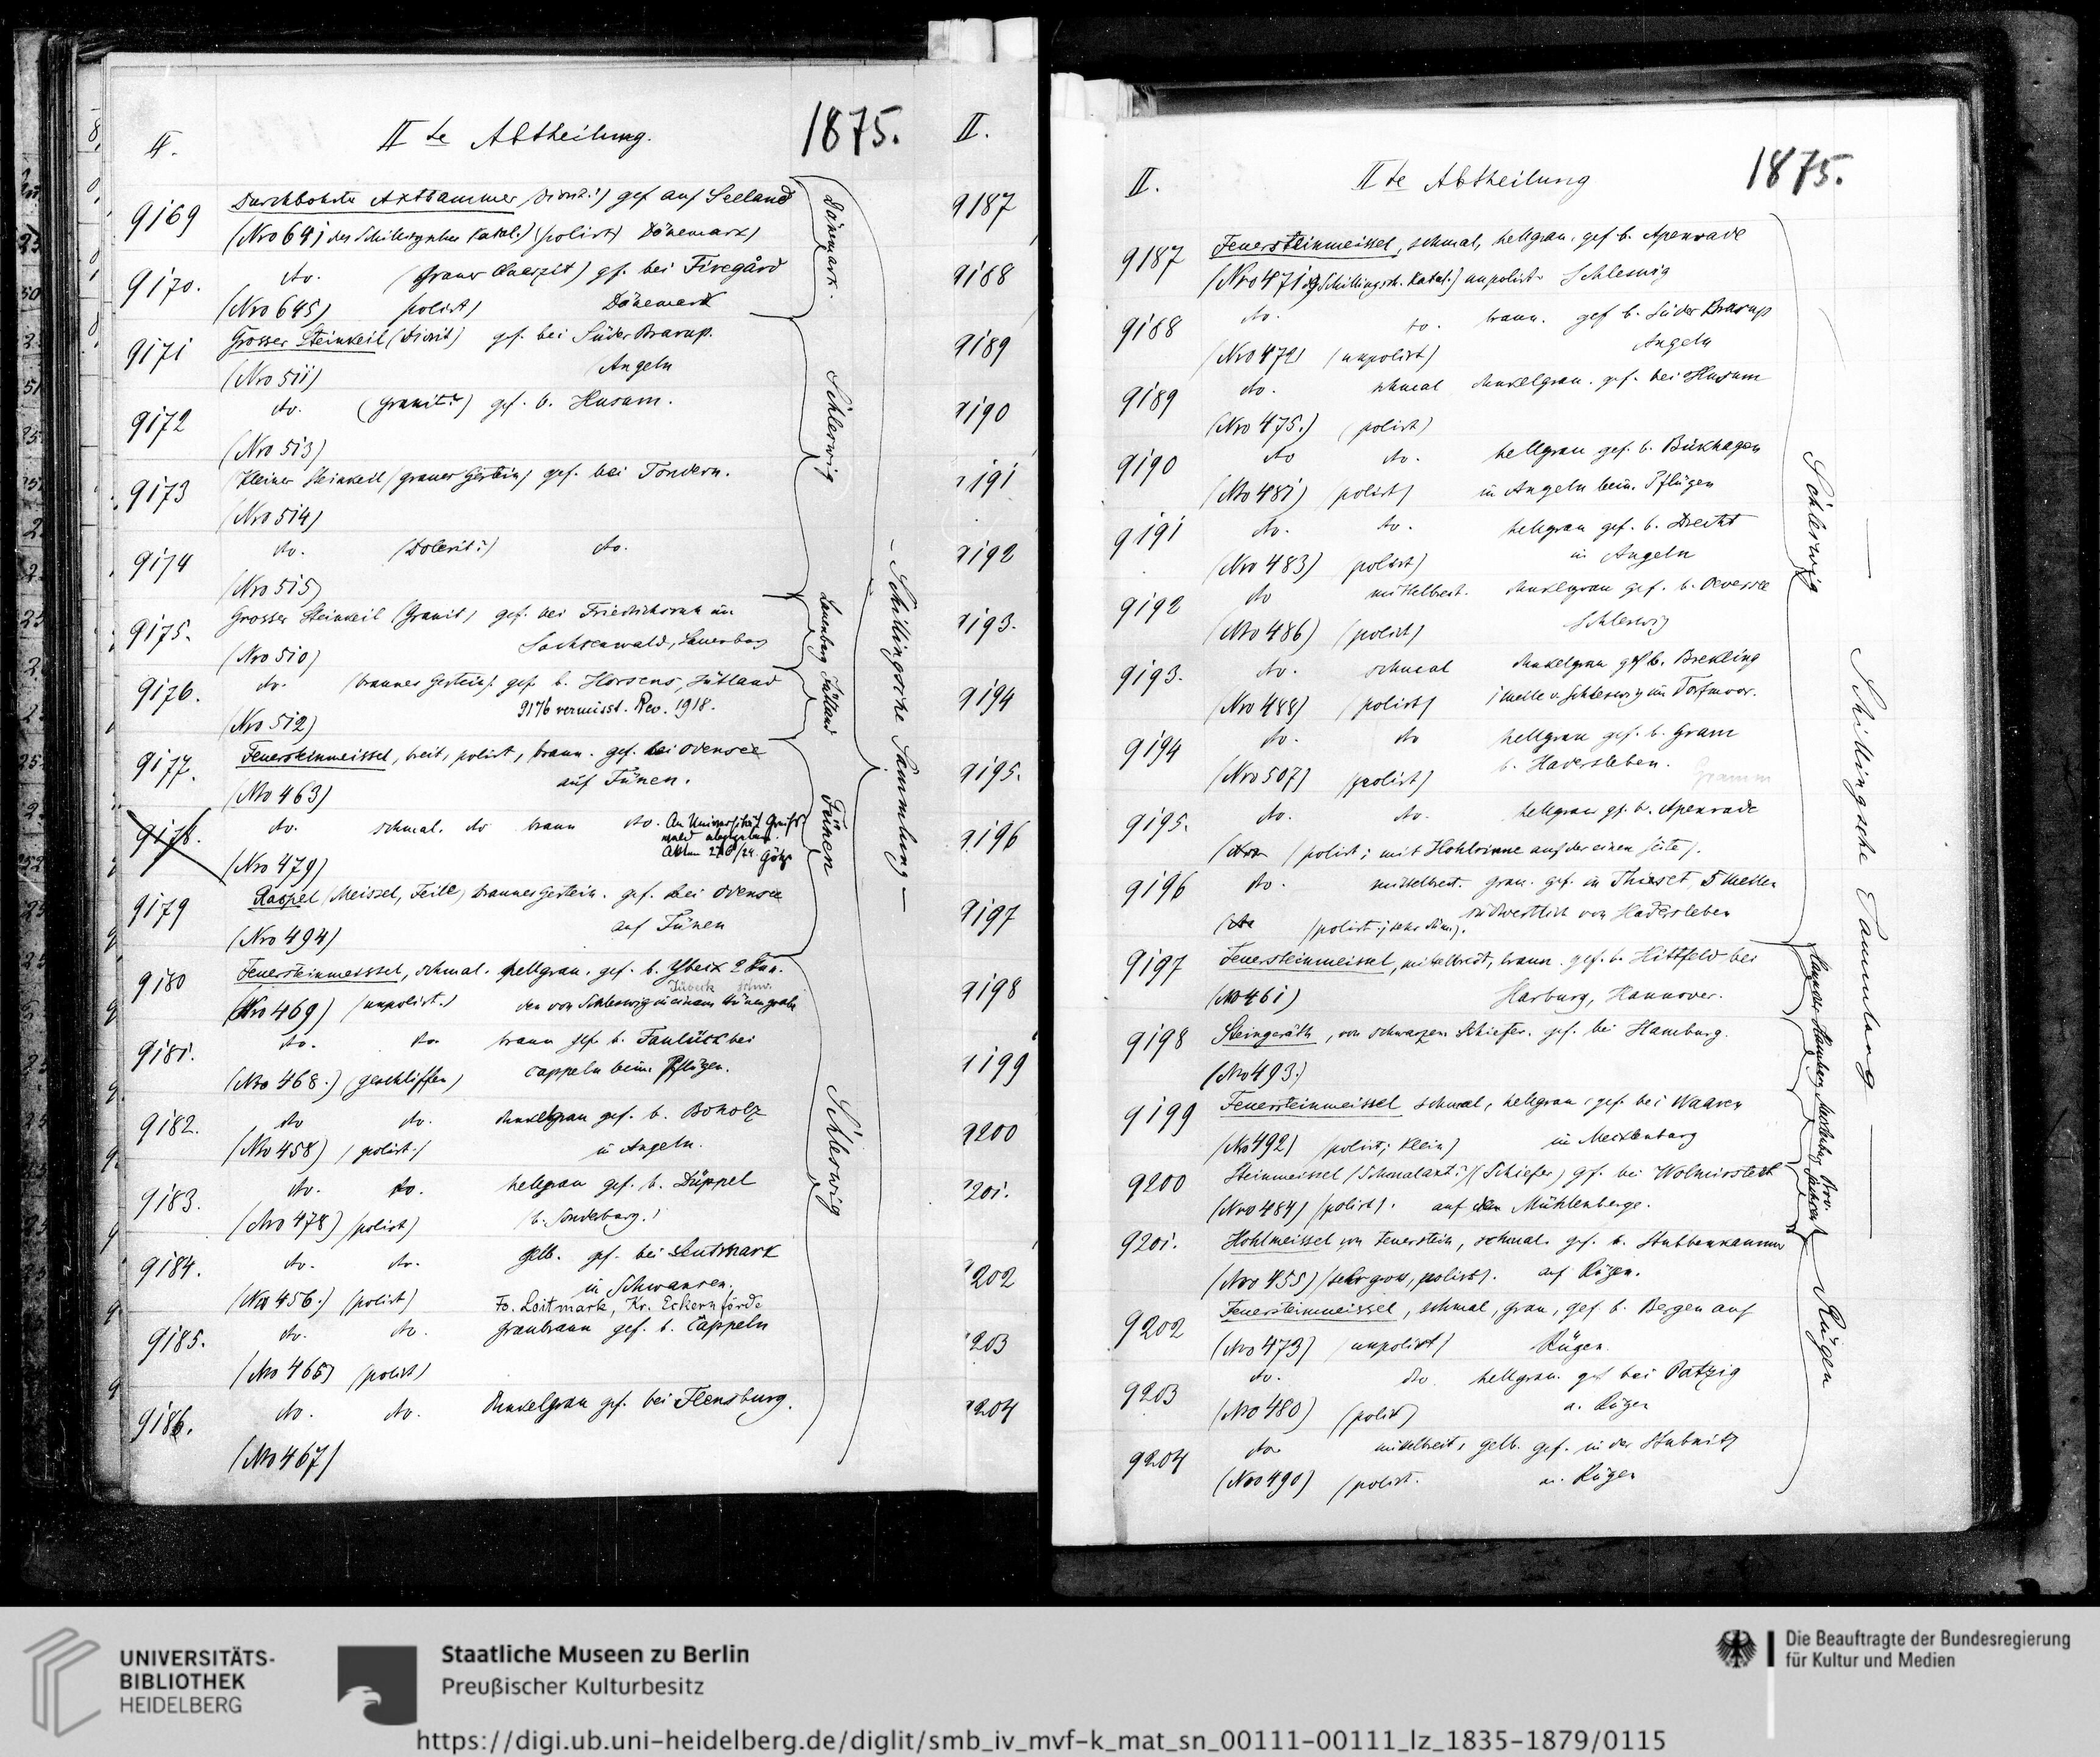 II.
IIte Abtheilung.
1875.
9169 Durchbohrter Axthammer (Diorit?) gef auf Seeland
(Nro 641 des Schillingschen Katal.) (polirt) Dänemark)
9170. do. (grauer Quarzit) gf. bei Firegård
(Nro 645) polirt) Dänemark
9171 Grosser Steinkeil (Diorit) gef. bei Süder Brarup.
(Nro 511) Angeln
9172 do. (Granit?) gef. b. Husum.
(Nro 513)
9173 Kleiner Steinkeil (graues Gestein) gef. bei Tondern.
(Nro 514)
9174 do. (Dolerit?) do.
(Nro 515)
9175. Grosser Steinkeil (Granit) gef. bei Friedrichsruh im
(Nro 510) Sachsenwald, Lauenburg
9176. do. (braunes Gestein). gef. b. Horsens, Jütland
9176 vermisst. Rev. 1918.
(Nro 512)
9177. Feuersteinmeissel, breit, polirt, braun. gef. bei Odensee
(Nro 463) auf Fünen.
9178. do. schmal. do braun do. An Universität Greifs
wald abgegeben.
(Nro 479)
9179 Raspel (Meissel, Feile) braunes Gestein. gef. bei Odensee
(Nro 494) auf Fünen
9180 Feuersteinmeissel, schmal. hellgrau. gef. b.
Jübeck
(Nro 469) (unpolirt.) von Schleswig in einem Hünengrabe
9181. do. do. braun gef. b. Faulück bei
(Nro 468.) (geschliffen) Cappeln beim Pflügen.
9182. do do. dunkelgrau gef. b. Boholz
(Nro 458) (polirt.) in Angeln.
9183. do. do. hellgrau gef. b. Düppel
(Nro 478) (polirt) (b. Sonderburg.)
9184. do. do. gelb. gef. bei Leutmark
in Schwansen.
(Nro 456.) (polirt) Fo. Loitmark, Kr. Eckernförde
9185. do. do. graubraun gef. b. Cappeln
(Nro 465) (polirt)
9186. do. do. dunkelgrau gef. bei Flensburg.
(Nro 467)
Dänemark.
Schleswig
Lauenburg
Jütland
Fünen
Schleswig
– Schillingsche Sammlung –
II.
9187
9188
9189
9190
9191
9192
9193.
9194
9195.
9196
9197
9198
9199
9200
9201.
9202
9203
9204
II.
IIte Abtheilung
1875.
9187 Feuersteinmeissel, schmal, hellgrau. gef b. Apenrade
(Nro 471 d. Schillingsch. Katal.) unpolirt Schleswig
9188 do. do. braun. gef b. Süder Brarup
(Nro 472) (unpolirt) Angeln
9189 do. schmal dunkelgrau. gef. bei Husum
(Nro 475.) (polirt)
9190 do do. hellgrau gef. b. Bükhagen
(Nro 481) (polirt) in Angeln beim Pflügen
9191 do. do. hellgrau gef. b. Drecht
(Nro 483) (polirt) in Angeln
9192 do mittelbreit. dunkelgrau gef. b. Oeversee
(Nro 486) (polirt) Schleswig
9193. do. schmal dunkelgrau gef b. Brekling
(Nro 488) (polirt) 1 Meile v. Schleswig im Torfmoor.
9194 do. do hellgrau gef. b. Gram
(Nro 507) (polirt) b. Hadersleben. Gramm
9195. do. do. hellgrau gf. b. Apenrade
(polirt; mit Hohlrinne auf der einen Seite).
9196 do. mittelbreit. grau. gef. in Thieset, 5 Meilen
südwestlich von Hadersleben
(polirt; sehr dünn).
9197 Feuersteinmeissel, mittelbreit, braun. gef. b. Hittfeld bei
(Nro 461) Harburg, Hannover.
9198 Steingeräth, von schwarzem Schiefer. gef. bei Hamburg.
(Nro 493.)
9199 Feuersteinmeissel schmal, hellgrau, gef. bei Waaren
(Nro 492) (polirt; klein) in Meklenburg
9200 Steinmeissel (Schmalaxt?) (Schiefer) gf. bei Wolmirstedt
(Nro 484) (polirt). auf dem Mühlenberge.
9201. Hohlmeissel von Feuerstein, schmal. gef. b. Stubbenkammer
(Nro 455) (sehr gross, polirt). auf Rügen.
9202 Feuersteinmeissel, schmal, grau, gef b. Bergen auf
(Nro 473) (unpolirt) Rügen.
9203 do. do hellgrau. gef bei Patzig
(Nro 480) (polirt) a. Rügen
9204 do. mittelbreit, gelb. gef. in der Stubnitz
(Nro 490) (polirt. a. Rügen
Schleswig
Hamburg
Prov.
Rügen
Schillingsche Sammlung
UNIVERSITÄTS-
BIBLIOTHEK
HEIDELBERG
Staatliche Museen zu Berlin
Preußischer Kulturbesitz
Die Beauftragte der Bundesregierung
für Kultur und Medien
https://digi.ub.uni-heidelberg.de/diglit/smb_iv_mvf-k_mat_sn_00111-00111_lz_1835-1879/0115